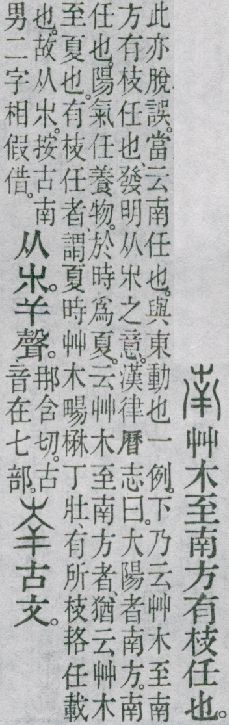 南艸木至南方有枝任也。
此亦脫誤。當云南任也。與東動也一例。下乃云艸木至南
方有枝任也。發明从𣎵之意。漢律曆志曰。大陽者南方。南
任也。陽氣任養物。於時爲夏。云艸木至南方者。猶云艸木
至夏也。有枝任者。謂夏時艸木暢楙丁壯。有所枝挌任載
也。故从𣎵。按古南
男二字相假借。
从𣎵𢆉聲。
那含切。古
音在七部。
𡴖古文。